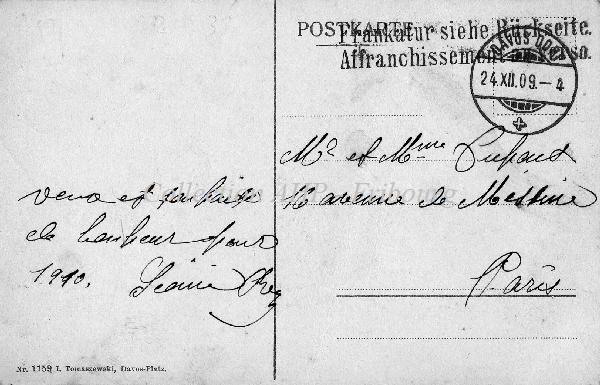 POSTKARTE
Frankatur siehe Rückseite.
Affranchissement au verso.
DAVOS
24.XII.09.–4
Mr et Mme Dupont
avenue de Messine
Paris
Collection Fribourg
vœux et souhaits
de bonheur pour
1910.
Nr. 1159 I. Tomaszewski, Davos-Platz.